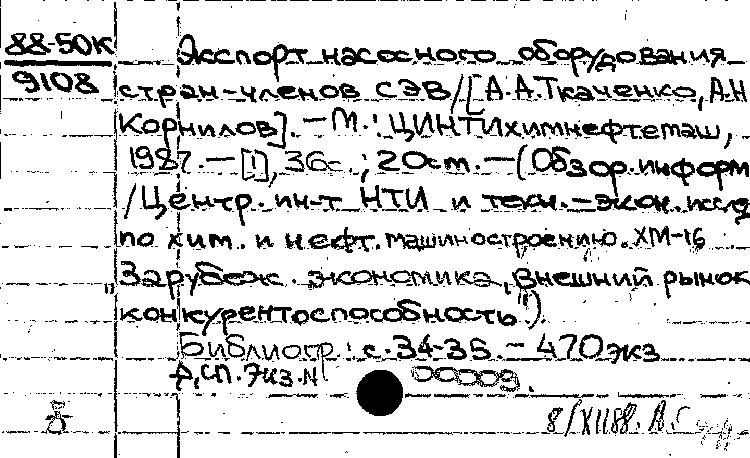 88-50К
9108
Экспорт насосного оборудования
стран-членов СЭВ/[А.А.Ткаченко, А.Н
Корнилов]. - М.: ЦИНТИхимнефтемаш,
1987. - [1], 36с.; 20см. - (Обзор.информ
/Центр. ин-т НТИ и техн.-экон. исслед
по хим. и нефт. машиностроению. ХМ-16
"Зарубеж. экономика, внешний рынок
конкурентоспособность")
Библиогр: с. 34-35. - 470экз
Д,СП. Экз.N 00009.
8/XII88.